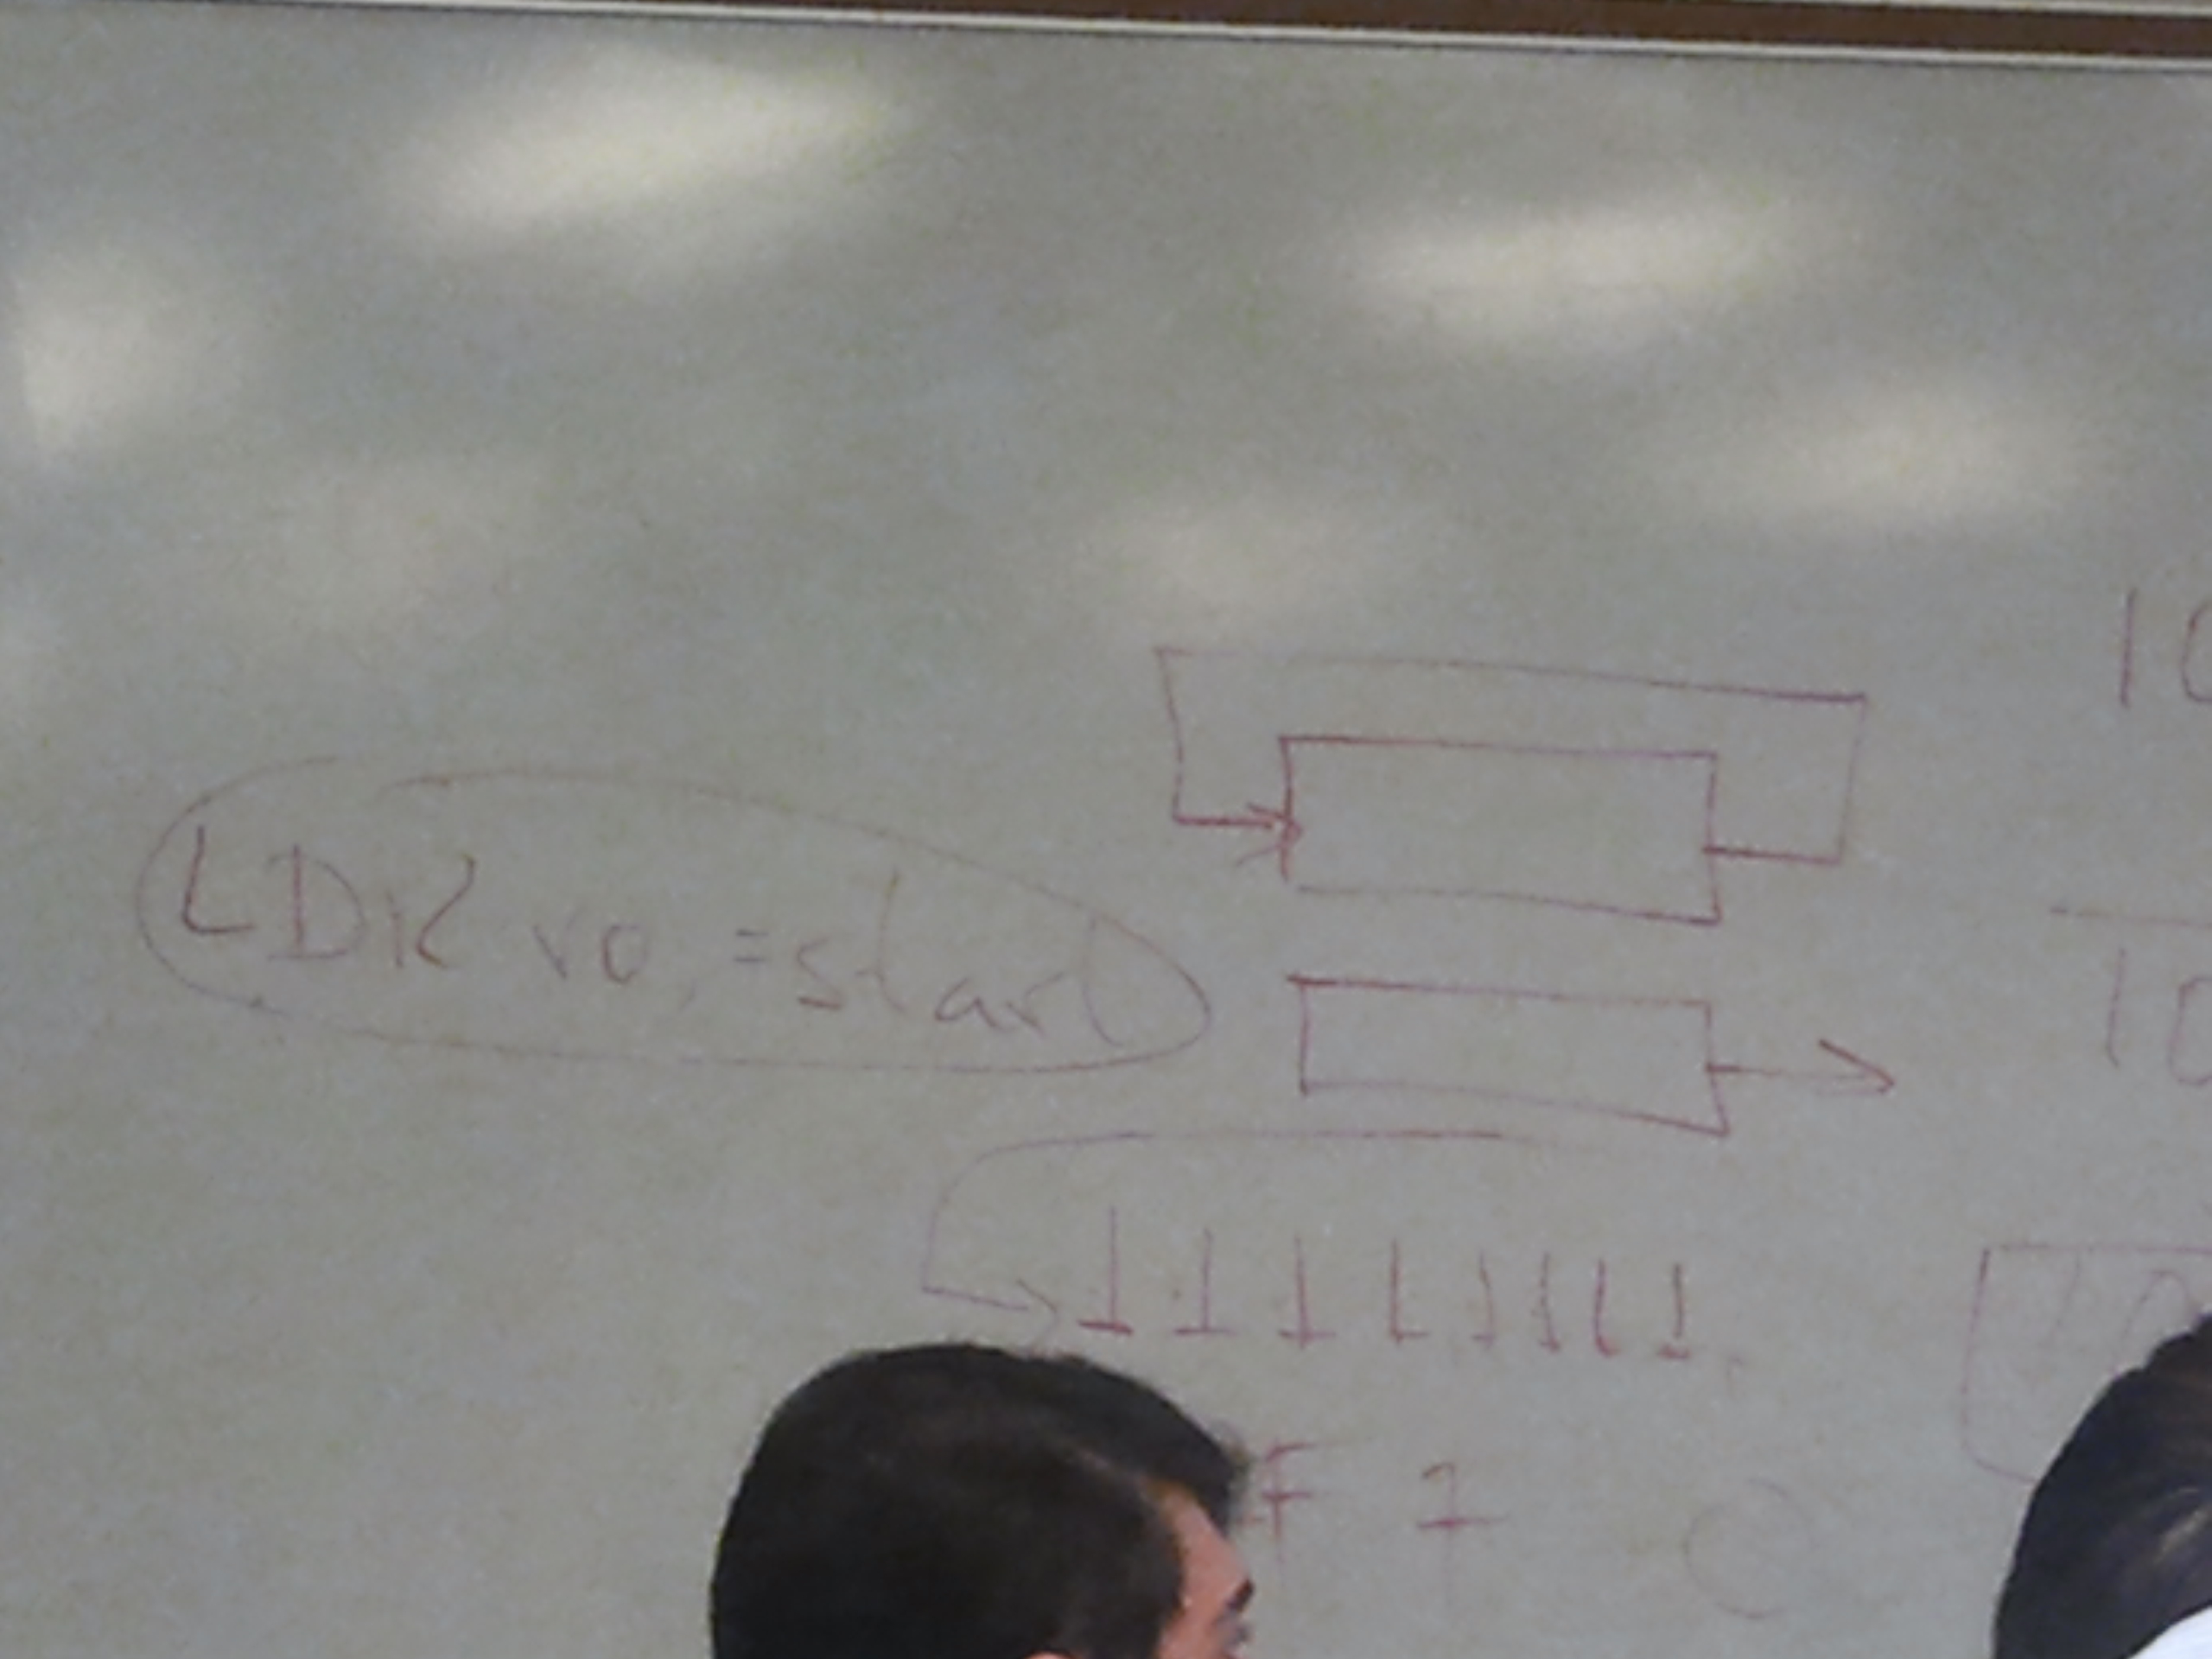 LDR r0, =start
10
10
1 1 1 1 1 1 1 1
F 7